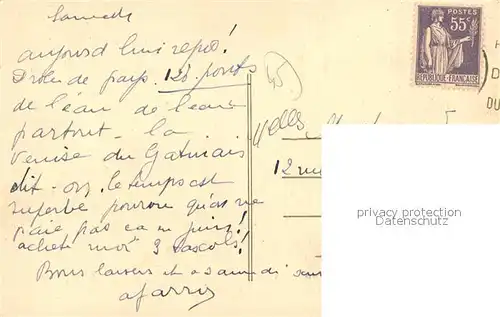 Samedi
aujourd'hui repos!
Drole de pays. 126 ponts
de l'eau de l'eau
partout - la
Venise du Gatinais
dit-on. le temps est
superbe pourvu qu'on ne
paie pas ca en juin!
achète moi 3
Bons baisers et a samedi
45
Melles
12
POSTES
55c
REPUBLIQUE FRANÇAISE
D
DU
privacy protection
Datenschutz